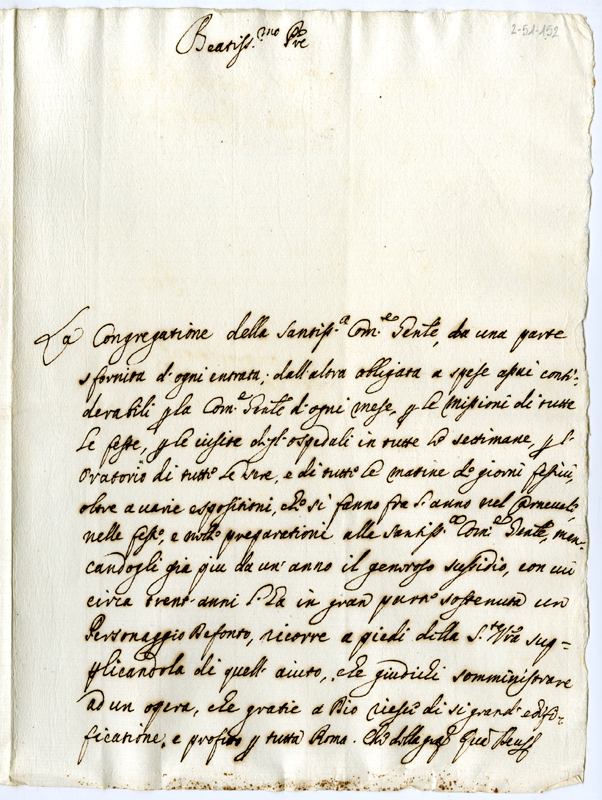 2-51-152
Beatiss.mo Pre
La Congregatione della Santiss.a Com.e Gen̄le, da una parte
sfornita d'ogni entrata, dall'altra obligata a spese assai consi-
derabili p la Com.e Gen̄le d'ogni mese, p le missioni di tutte
le feste, p le visite degl'ospedali in tutte le settimane, p l'
oratorio di tutte le sere, e di tutte le matine de giorni festivi,
oltre a varie espositioni, che si fanno fra l'anno nel Carnevale,
nelle feste, e nelle preparationi alla Santiss.a Com.e Gen̄le, man-
candogli già più da un'anno il generoso sussidio, con cui
circa trent'anni l'ha in gran parte sostenuta un
Personaggio Defonto, ricorre a piedi della S.tà Vra sup-
plicandola di quell'aiuto, che giudichi somministrare
ad un opera, che gratie a Dio riesce di sì grand'edifi-
ficatione, e profitto p tutta Roma. Che della gra